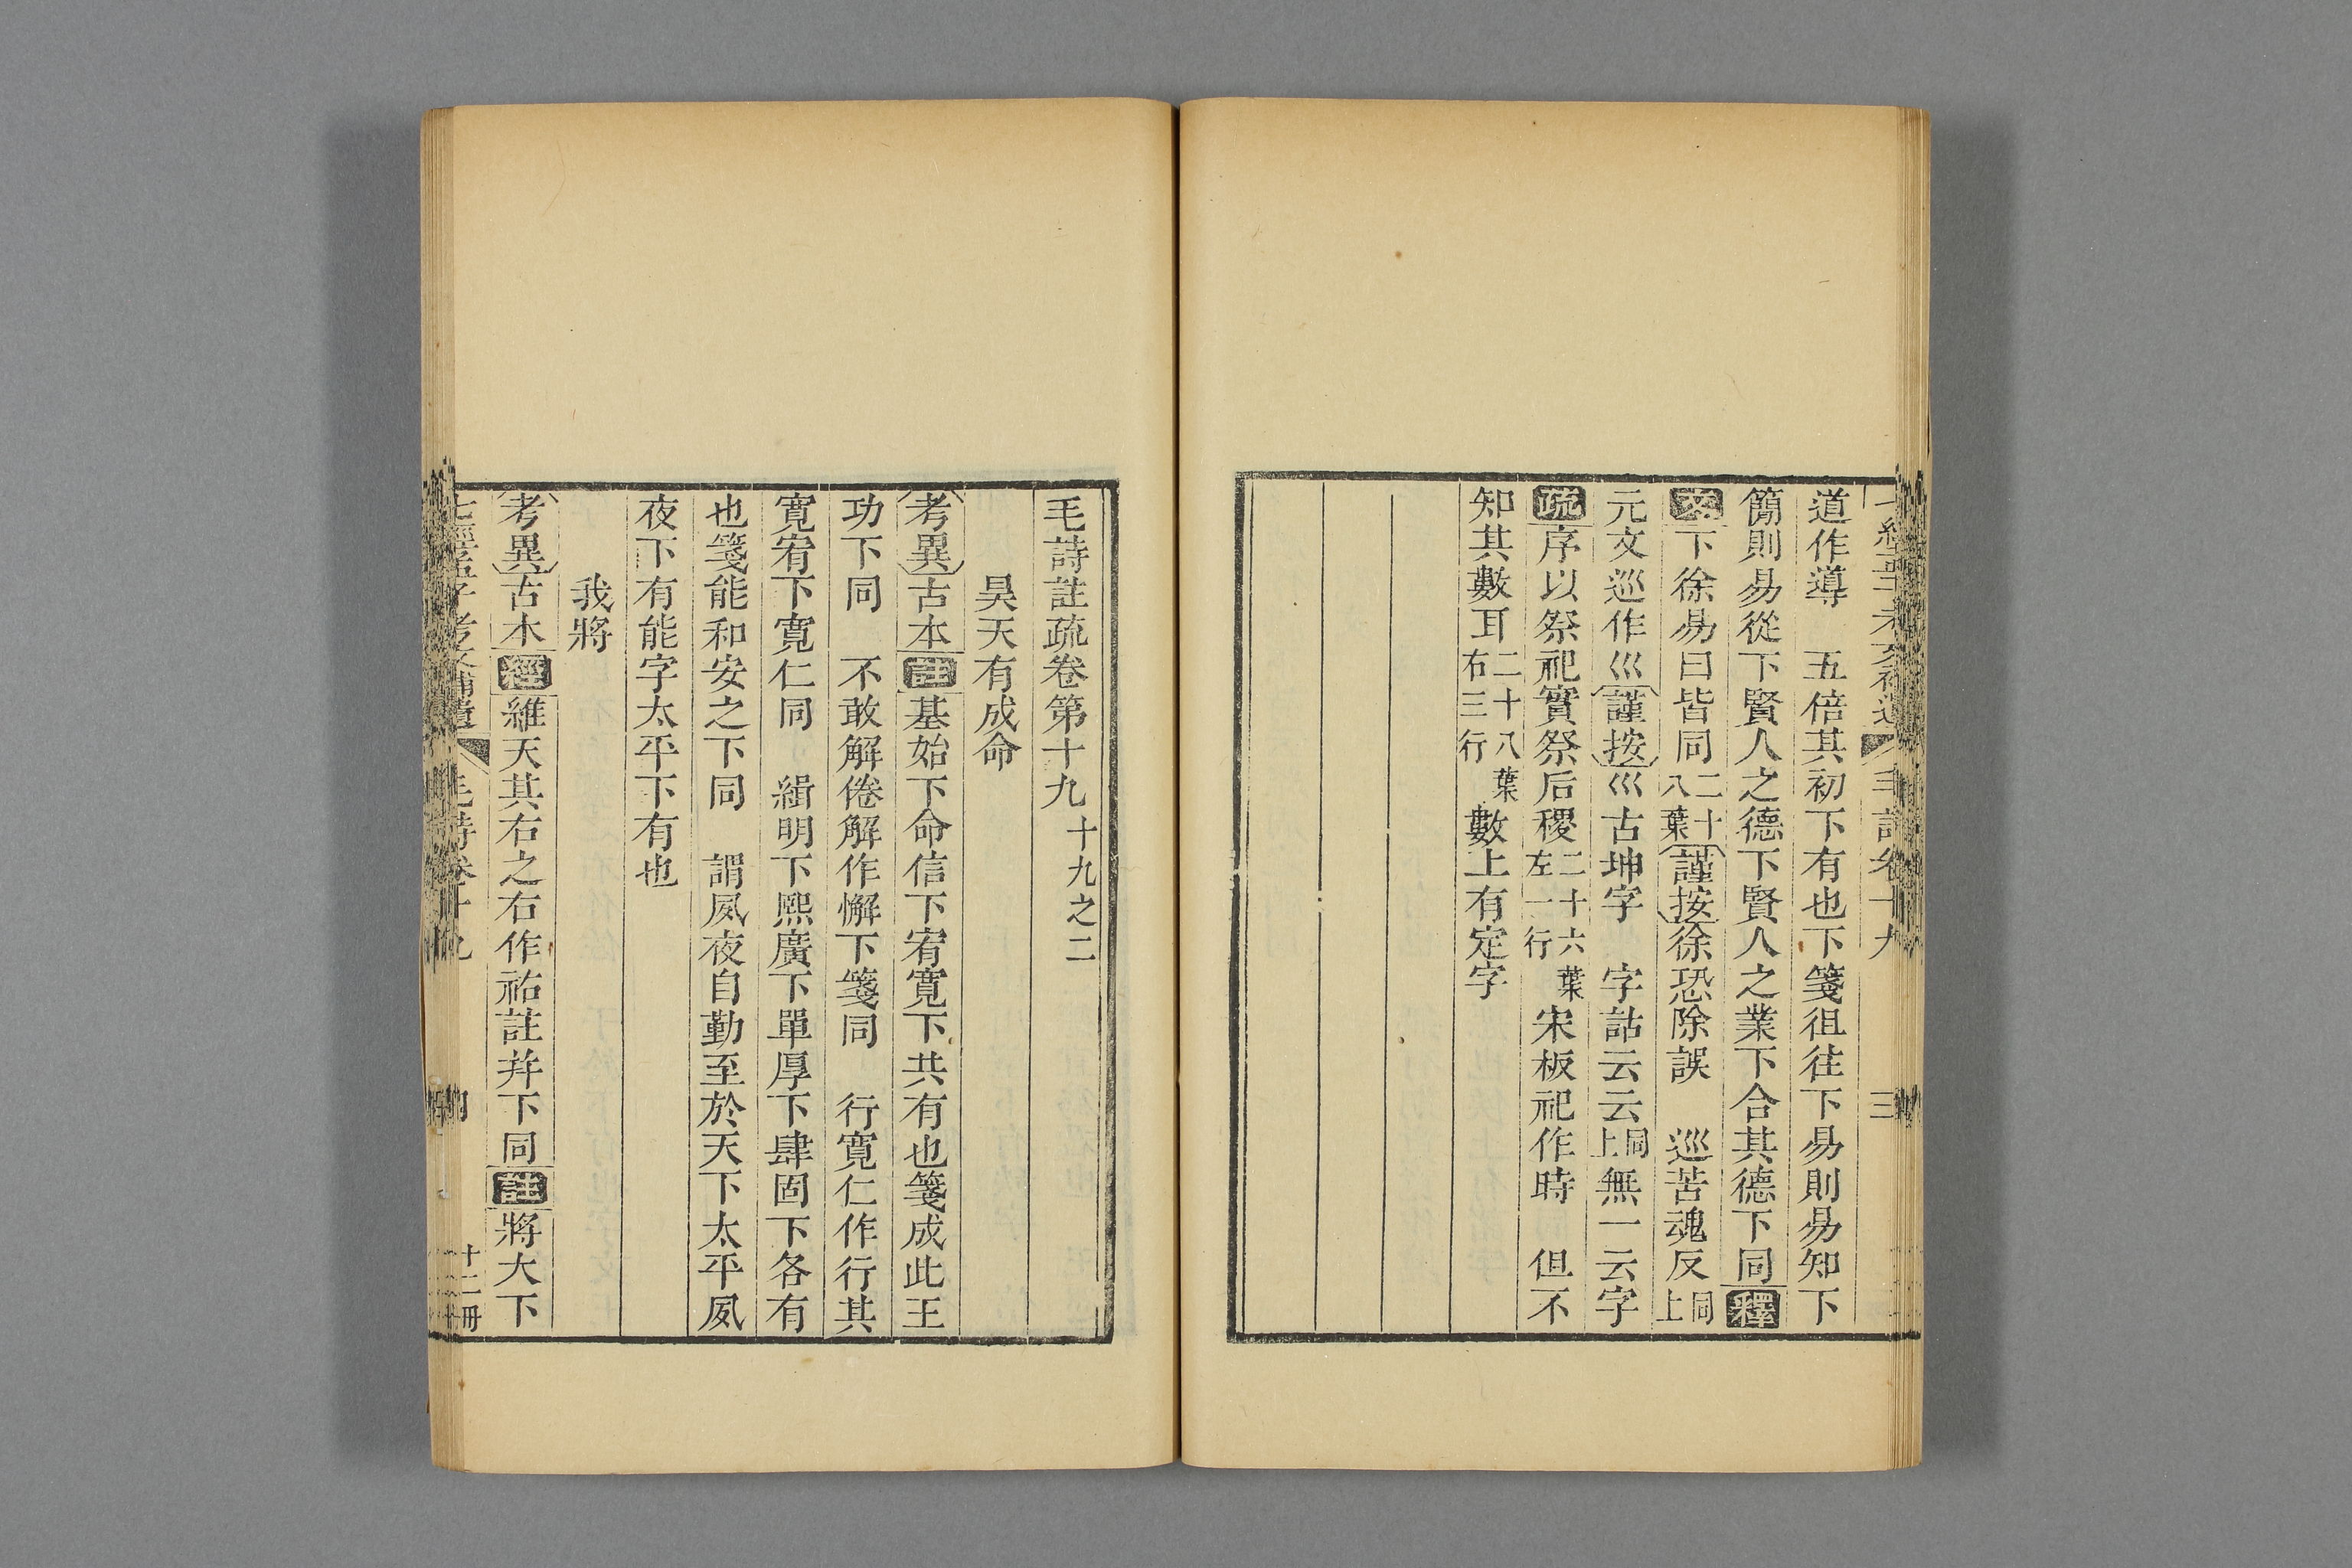 道作導　五倍其初下有也下箋徂往下易則易知下
簡則易從下賢人之德下賢人之業下合其德下同釋
文下徐易曰皆同二十八葉謹按徐恐除誤　巡苦魂反同上
元文巡作巛謹按巛古坤字　字詁云云同上無一云字
疏序以祭祀實祭后稷二十六葉左一行宋板祀作時　但不
知其數耳二十八葉右三行數上有定字
毛詩註疏卷第十九十九之二
昊天有成命
考異古本註基始下命信下宥寬下共有也箋成此王
功下同　不敢解倦解作懈下箋同　行寬仁作行其
寬宥下寬仁同　緝明下熙廣下單厚下肆固下各有
也箋能和安之下同　謂夙夜自勤至於天下太平夙
夜下有能字太平下有也
我將
考異古本經維天其右之右作祐註并下同註將大下
七經孟子考文補遺　毛詩卷十九　四　十二冊